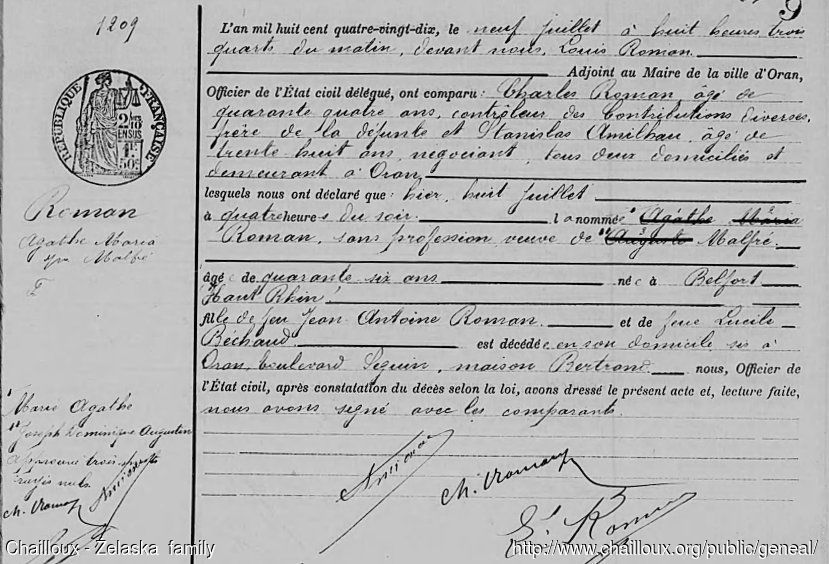 9
1209
L'an mil huit cent quatre-vingt-dix, le neuf Juillet à huit heures trois
quarts du matin, devant nous, Louis Roman
Adjoint au Maire de la ville d'Oran,
Officier de l'État civil délégué, ont comparu: Charles Roman âgé de
quarante quatre ans, contrôleur des Contributions diverses,
frère de la défunte et Stanislas Amilhau, âgé de
trente huit ans, négociant, tous deux domiciliés et
demeurant à Oran,
lesquels nous ont déclaré que: hier, huit Juillet
à quatre heures du soir la nommée Agathe Maria
Roman, sans profession veuve de Auguste Malfré
âgée de quarante six ans née à Belfort
Haut Rhin
fille de feu Jean Antoine Roman et de feue Lucile
Béchaud est décédée en son domicile sis à
Oran, boulevard Seguin, maison Bertrand nous, Officier de
l'État civil, après constatation du décès selon la loi, avons dressé le présent acte et, lecture faite,
nous avons signé avec les comparants.
RÉPUBLIQUE FRANÇAISE
2 10
EN SUS
1F
50c
Roman
Agathe Maria
F
Marie Agathe
Joseph Dominique Augustin
approuvé trois mots
rayés nuls
Ch. Roman
Ch. Roman
L. Roman
Chailloux - Zelaska family
http://www.chailloux.org/public/geneal/